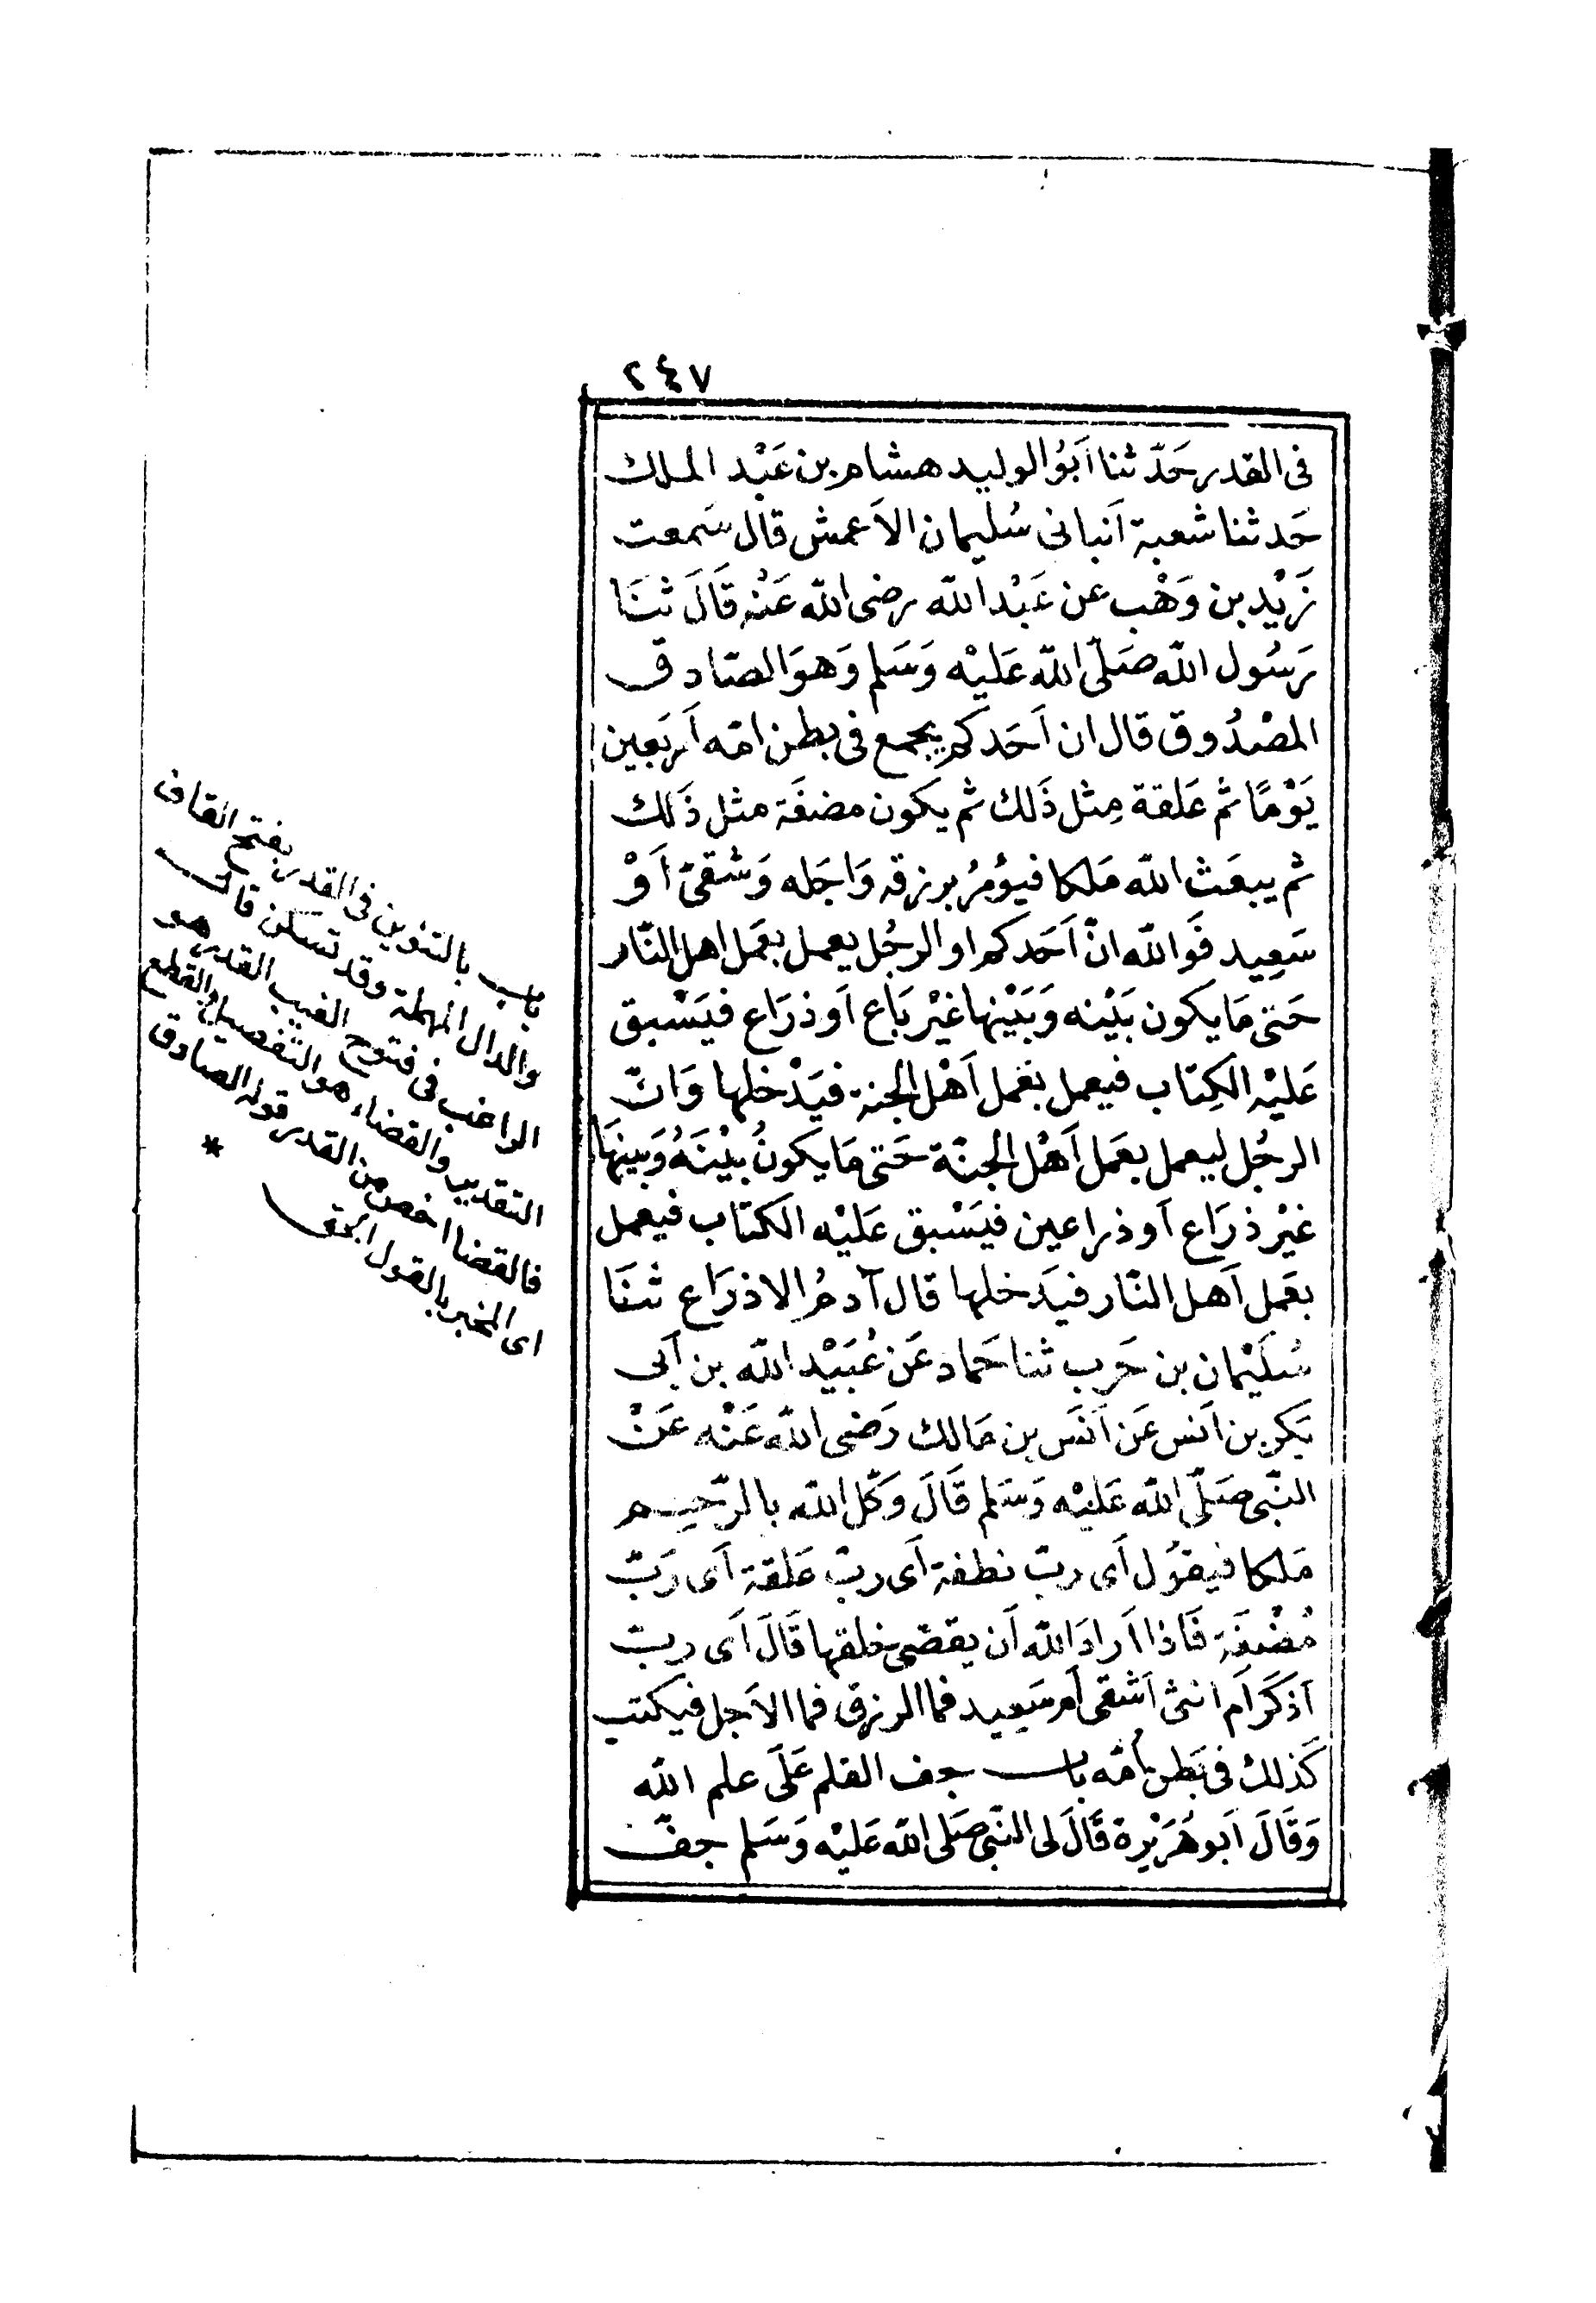 ٢٤٧
فى القدر حَدّثنا أبُو الوليد هشام بن عَبْد الملك
حَدثنا شعبة أنبانى سُليمان الأعمش قال سَمعت
زَيْد بن وَهْب عن عَبْد الله رضى الله عَنْه قَالَ ثنَا
رَسُول الله صَلّى الله عَليْه وَسَلم وَهوَ الصّادق
المصْدُوق قال ان أحَدكم يجمع فى بطن امّه أربَعين
يَوْمًا ثم عَلقة مِثل ذَلك ثم يكون مضغَة مثل ذَلك
ثم يبعَث الله مَلكا فيؤمُر برزقه وَاجَله وَشقىّ أوْ
سَعِيد فَوَالله انّ أحَدكم او الرجُل يعمل بعَمل اهل النّار
حَتى مَا يكون بَيْنه وَبَيْنها غيْر بَاع أو ذرَاع فيَسْبق
عَليْه الكِتاب فيعمل بعَمل أهْل الجنة فيَدْخلها وَانّ
الرجُل ليعمل بعَمل أهْل الجنّة حَتى مَا يكونُ بيْنَهُ وَبَينهَا
غيْر ذرَاع أو ذراعين فيَسْبق عَليْه الكتاب فيعمل
بعَمل أهل النّار فيَدخلها قال آدمُ الا ذرَاع ثنَا
سُليْمان بن حَرب ثنا حَماد عَن عُبَيْد الله بن أبى
بَكر بن أنس عَن أنَس بن مَالك رَضى الله عَنْه عَنْ
النّبى صَلّى الله عَليْه وَسَلم قَالَ وَكّل الله بالرّحِم
مَلكا فيقوُل أى ربّ نطفة أى ربّ عَلقة أى رَبّ
مُضْغَة فَاذا أرادَ الله أن يقضى خلقها قَالَ أى ربّ
أذكَر أم انثى أشقى أم سَعِيد فما الرزق فما الأجل فيكتب
كَذلك فى بَطن أمّه باب جف القلم عَلَى علم الله
وَقَالَ أبو هُرَيْرة قَالَ لى النّبى صَلى الله عَليْه وَسَلم جفّ
باب بالتنوين فى القدر بفتح القاف
والدال المهملة وقد تسكن قال
الراغب فى فتوح الغيب القدر هو
التقدير والقضاء هو التفصيل والقطع
فالقضا اخص من القدر قوله الصادق
اى المخبر بالقول الحق
*